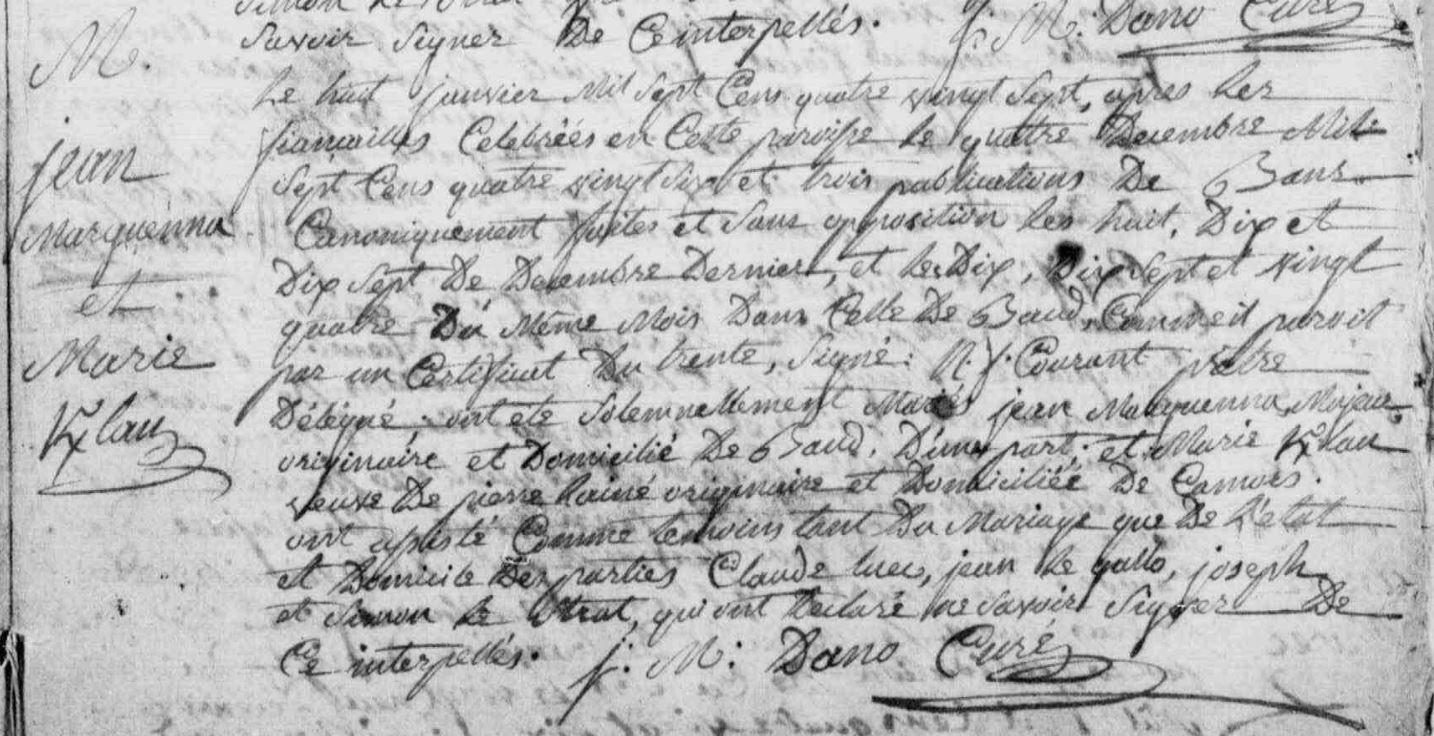 savoir signer De Ce interpellés. j. M. Dano Curé
M.
jean
Marquenna
et
Marie
Kxlau
Le huit janvier Mil Sept Cens quatre vingt Sept, apres les
fiancailles Celebréés en Cette paroisse le quatre Decembre Mil
Sept Cens quatre vingt Six et trois publications De Bans
Canoniquement faites et Sans opposition les huit, Dix et
Dix Sept De Decembre Dernier, et les Dix, Dix Sept et vingt
quatre Du Même Mois Dans Celle De Baud, Comme il paroit
par un Certificat Du trente, Signé: N. j. Courant prêtre
Délégué. ont été Solemnellement Mariés jean Marquenna, Majeur
originaire et Domicilié De Baud, D'une part; et Marie Kxlau
veuve De pierre lainé originaire et Domiciliée De Camors.
ont assisté Comme temoins tant Du Mariage que De L'état
et Domicile Des parties Claude lucas, jean le gallo, joseph
et Simon le Strat, qui ont Declaré ne Savoir Signer De
Ce interpellés. j. M. Dano Curé